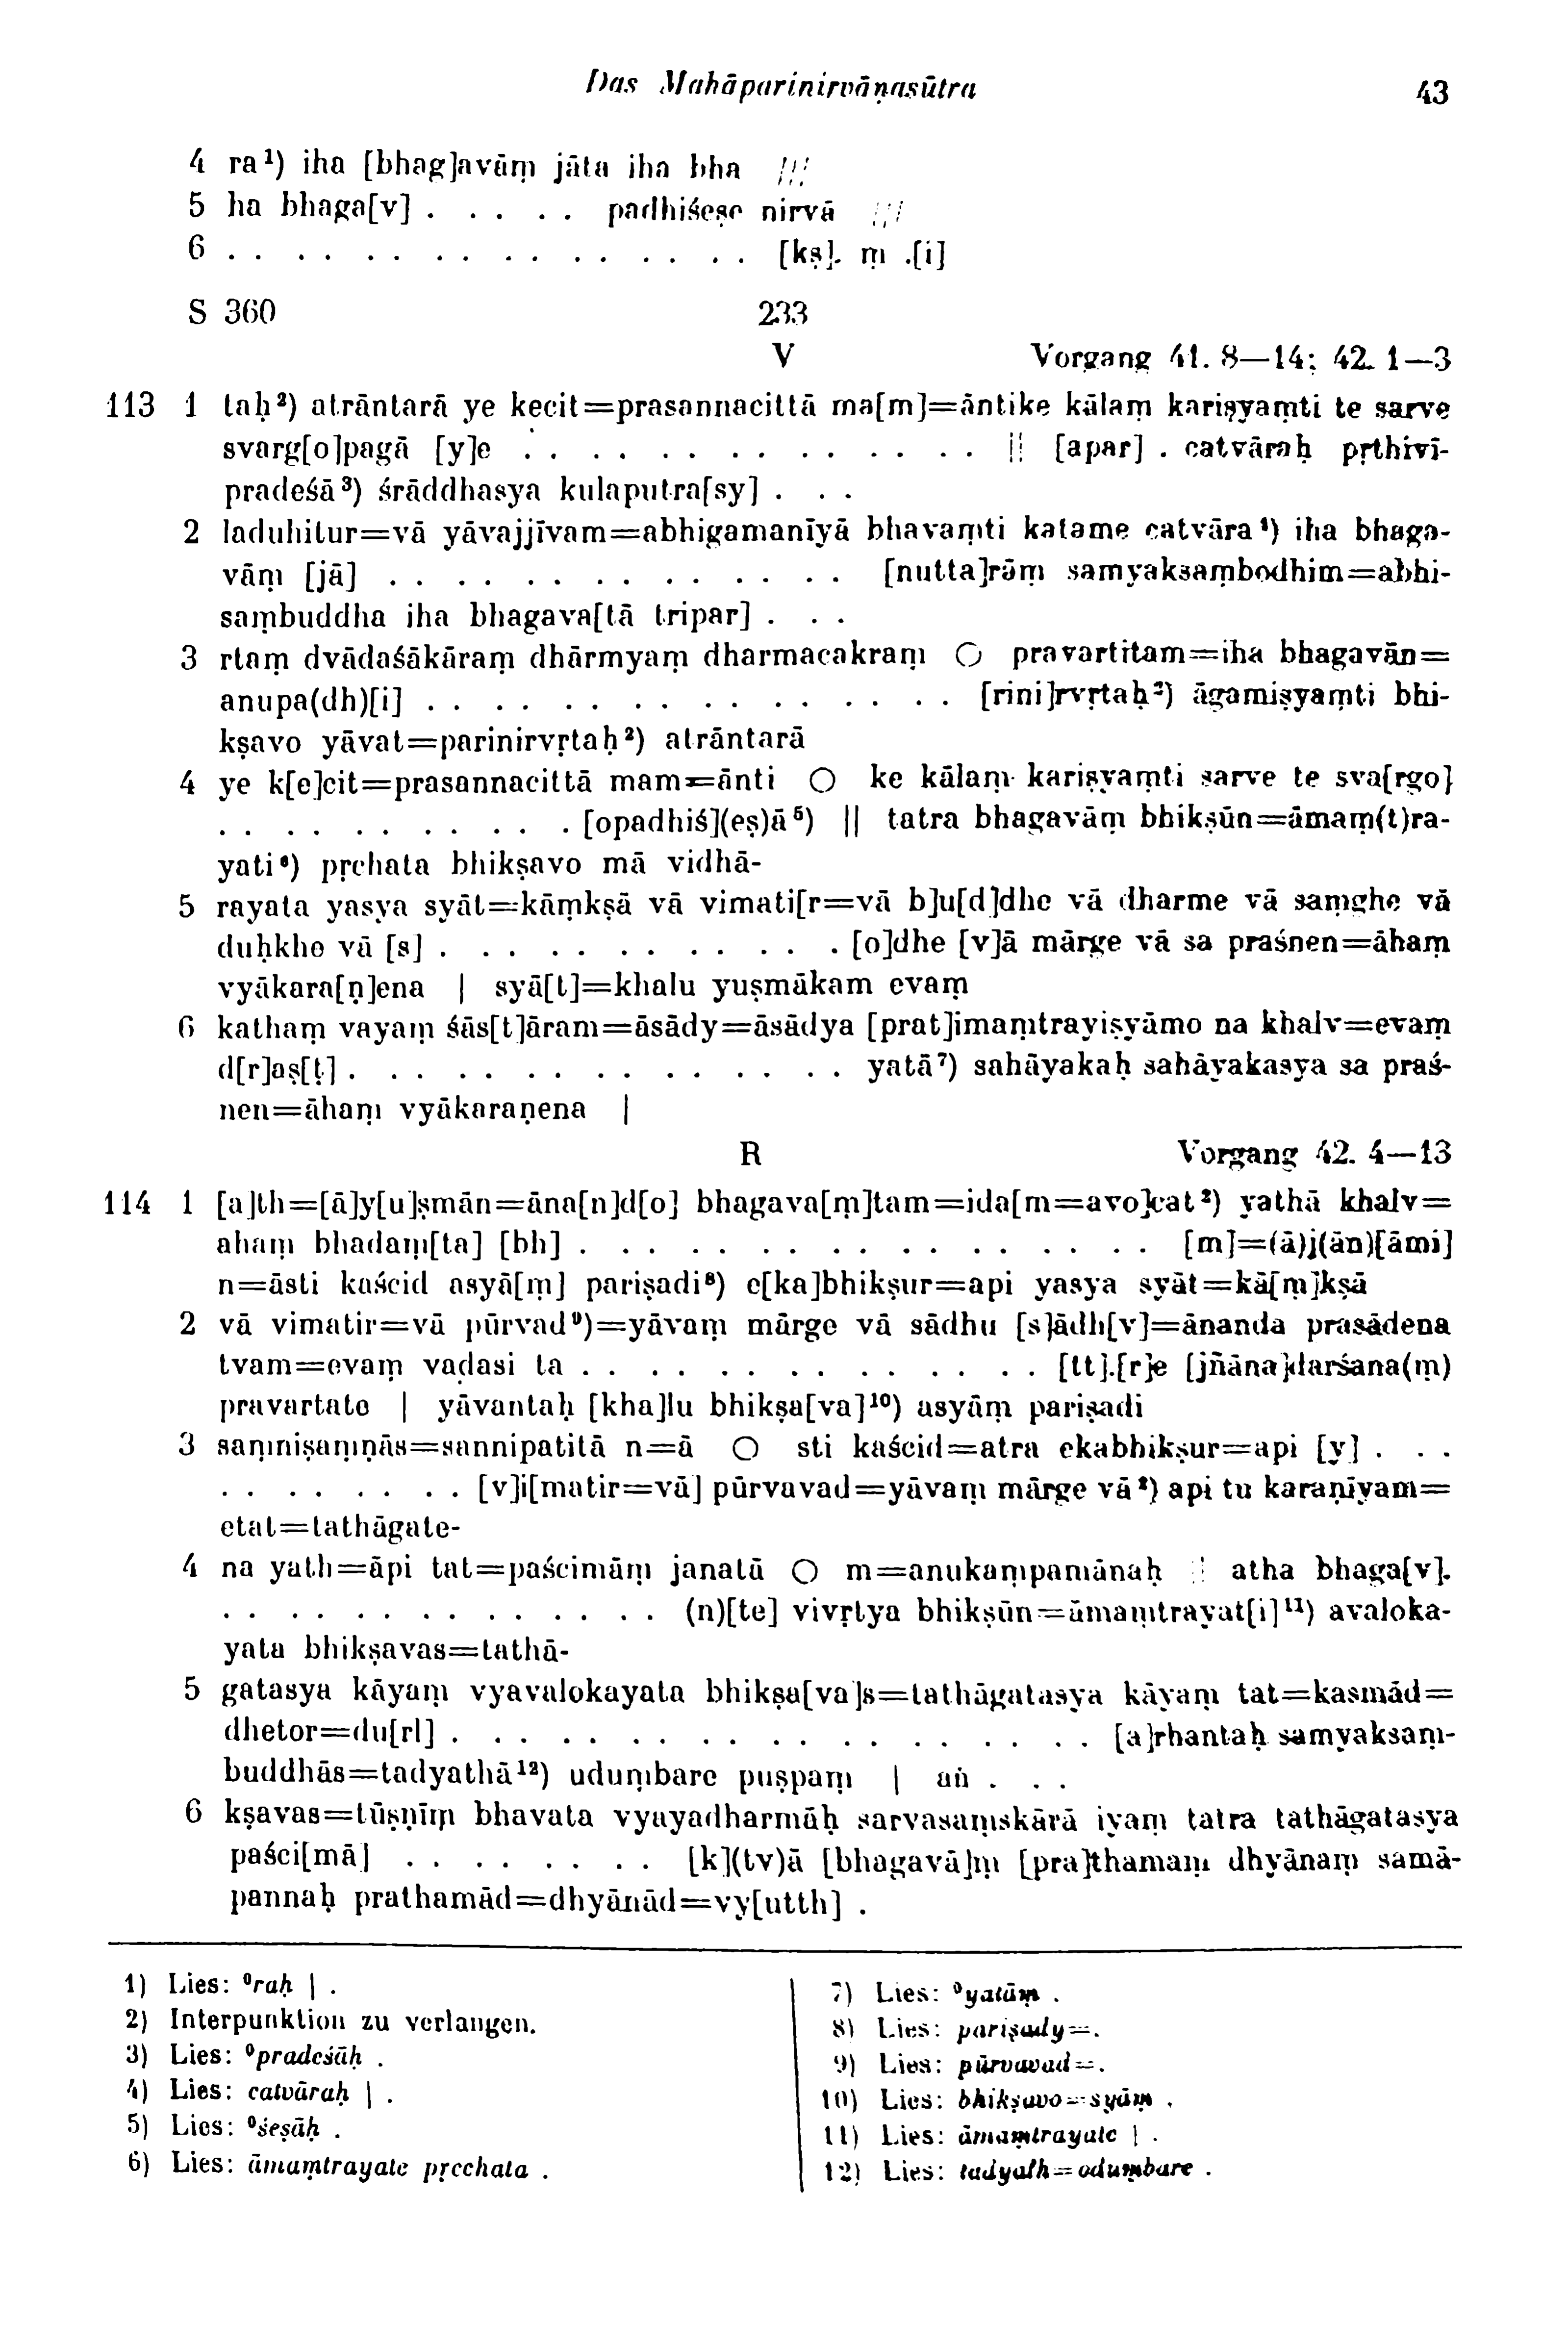 Das Mahāparinirvāṇasūtra 43
4 ra¹) iha [bhag]avāṃ jāta iha bha ///
5 ha bhaga[v] . . . . . padhiśeṣe nirvā ///
6 . . . . . . . . . . . . . . . . [kṣ]. ṃ .[i]
S 360 233
V Vorgang 41. 8—14; 42. 1—3
113 1 taḥ²) atrāntarā ye kecit=prasannacittā ma[m]=āntike kālaṃ kariṣyaṃti te sarve
svarg[o]pagā [y]e . . . . . . . . . . . . . . || [apar] . catvāraḥ pṛthivī-
pradeśā³) śrāddhasya kulaputra[sy] . . .
2 laduhitur=vā yāvajjīvam=abhigamanīyā bhavaṃti katame catvāra⁴) iha bhaga-
vāṃ [jā] . . . . . . . . . . . . . . [nutta]rāṃ samyaksaṃbodhim=abhi-
saṃbuddha iha bhagava[tā tripar] . . .
3 rtaṃ dvādaśākāraṃ dhārmyaṃ dharmacakraṃ ○ pravartitam=iha bhagavān=
anupa(dh)[i] . . . . . . . . . . . . . . . . [rini]rvṛtaḥ²) āgamiṣyaṃti bhi-
kṣavo yāvat=parinirvṛtaḥ²) atrāntarā
4 ye k[e]cit=prasannacittā mam=ānti ○ ke kālaṃ kariṣyaṃti sarve te sva[rgo]
. . . . . . . . . . . [opadhiś](eṣ)ā⁵) || tatra bhagavāṃ bhikṣūn=āmaṃ(t)ra-
yati⁶) pṛchata bhikṣavo mā vidhā-
5 rayata yasya syāt=kāṃkṣā vā vimati[r=vā b]u[d]dhe vā dharme vā saṃghe vā
duḥkhe vā [s] . . . . . . . . . . . . [o]dhe [v]ā mārge vā sa praśnen=āhaṃ
vyākara[ṇ]ena | syā[t]=khalu yuṣmākam evaṃ
6 kathaṃ vayaṃ śās[t]āram=āsādy=āsādya [prat]imaṃtrayiṣyāmo na khalv=evaṃ
d[r]aṣ[ṭ] . . . . . . . . . . . . . . . yatā⁷) sahāyakaḥ sahāyakasya sa praś-
nen=āhaṃ vyākaraṇena |
R Vorgang 42. 4—13
114 1 [a]th=[ā]y[u]ṣmān=āna[n]d[o] bhagava[ṃ]tam=ida[m=avo]cat²) yathā khalv=
ahaṃ bhadaṃ[ta] [bh] . . . . . . . . . . . . . . . . . . [m]=(ā)j(ān)[āmi]
n=āsti kaścid asyā[ṃ] pariṣadi⁸) e[ka]bhikṣur=api yasya syāt=kā[ṃ]kṣā
2 vā vimatir=vā pūrvad⁹)=yāvaṃ mārge vā sādhu [s]ādh[v]=ānanda prasādena
tvam=evaṃ vadasi ta . . . . . . . . . . . . . . [tt].[r]e [jñāna]darśana(ṃ)
pravartate | yāvantaḥ [kha]lu bhikṣa[va]¹⁰) asyāṃ pariṣadi
3 saṃniṣaṃṇās=sannipatitā n=ā ○ sti kaścid=atra ekabhikṣur=api [y] . . .
. . . . . . . . [v]i[matir=vā] pūrvavad=yāvaṃ mārge vā²) api tu karaṇīyam=
etat=tathāgate-
4 na yath=āpi tat=paścimāṃ janatā ○ m=anukaṃpamānaḥ || atha bhaga[v].
. . . . . . . . . . . . . . (n)[te] vivṛtya bhikṣūn=āmaṃtrayat[i]¹¹) avaloka-
yata bhikṣavas=tathā-
5 gatasya kāyaṃ vyavalokayata bhikṣa[va]s=tathāgatasya kāyaṃ tat=kasmād=
dhetor=du[rl] . . . . . . . . . . . . . . . . . . . [a]rhantaḥ samyaksaṃ-
buddhās=tadyathā¹²) uduṃbare puṣpaṃ | aṅ . . .
6 kṣavas=tūṣṇīṃ bhavata vyayadharmāḥ sarvasaṃskārā iyaṃ tatra tathāgatasya
paści[mā] . . . . . . . . [k](tv)ā [bhagavā]ṃ [pra]thamaṃ dhyānaṃ samā-
pannaḥ prathamād=dhyānād=vy[utth] .
1) Lies: ⁰raḥ | .
2) Interpunktion zu verlangen.
3) Lies: ⁰pradeśāḥ .
4) Lies: catvāraḥ | .
5) Lies: ⁰śeṣāḥ .
6) Lies: āmaṃtrayate pṛcchata .
7) Lies: ⁰yatāṃ .
8) Lies: pariṣady=.
9) Lies: pūrvavad=.
10) Lies: bhikṣavo=syāṃ .
11) Lies: āmaṃtrayate | .
12) Lies: tadyath=oduṃbare .